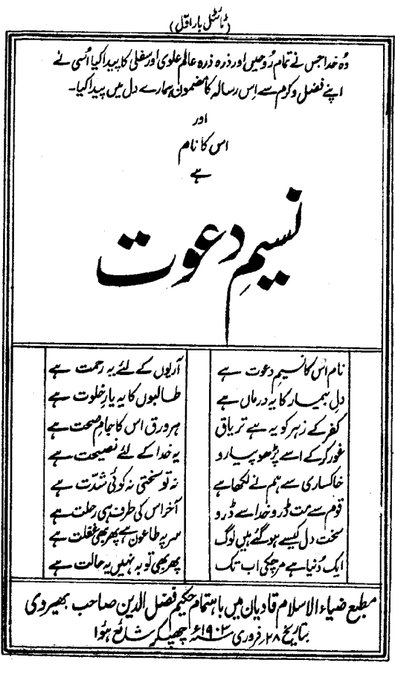 (ٹائٹل بار اول)
وہ خدا جس نے تمام روحیں اور ذرہ ذرہ عالم علوی اور سفلی کا پیدا کیا اُسی نے
اپنے فضل و کرم سے اِس رسالہ کا مضمون ہمارے دل میں پیدا کیا۔
اور
اس کا نام
ہے
نسیمِ دعوت
نام اس کا نسیمِ دعوت ہے آریوں کے لئے یہ رحمت ہے
دل بیمار کا یہ درماں ہے طالبوں کا یہ یارِ خلوت ہے
کفر کے زہر کو یہ ہے تریاق ہر ورق اس کا جامِ صحت ہے
غور کر کے اسے پڑھو پیارو یہ خدا کے لئے نصیحت ہے
خاکساری سے ہم نے لکھا ہے نہ تو سختی نہ کوئی شدّت ہے
قوم سے مت ڈرو خدا سے ڈرو آخر اس کی طرف ہی رحلت ہے
سخت دل کیسے ہو گئے ہیں لوگ سر پہ طاعوں ہے پھر بھی غفلت ہے
ایک دُنیا ہے مر چکی اب تک پھر بھی توبہ نہیں یہ حالت ہے
مطبع ضیاء الاسلام قادیان میں باہتمام حکیم فضل الدین صاحب بھیروی
بتاریخ ۲۸ فروری ۱۹۰۳ء چھپکر شائع ہُوا